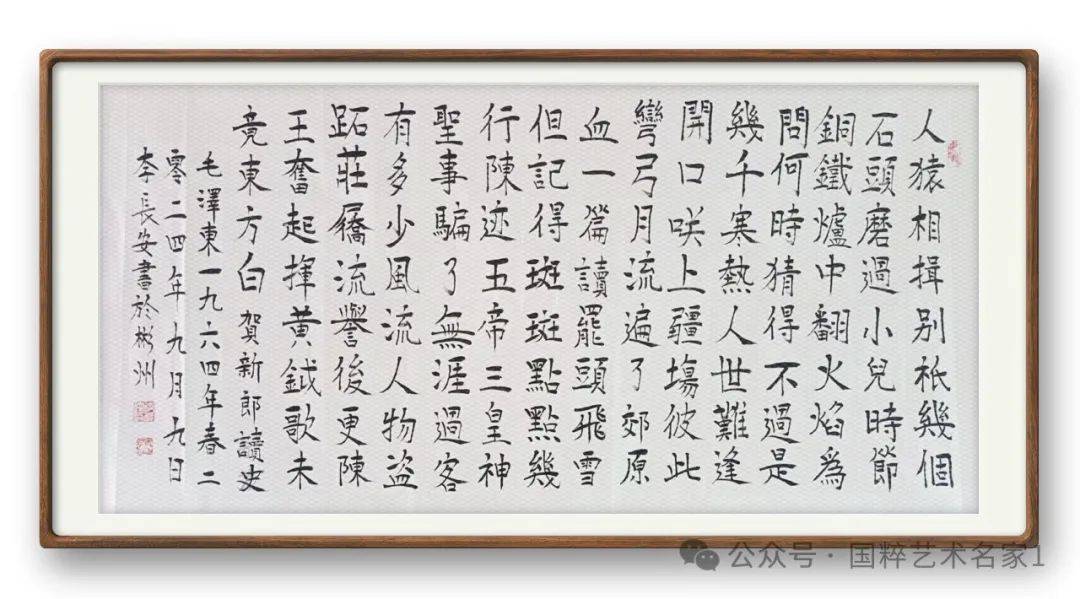 人猿相揖别祇幾個
石頭磨過小兒時節
銅鐵爐中翻火焰為
問何時猜得不過是
幾千寒熱人世難逢
開口咲上疆場彼此
彎弓月流遍了郊原
血一篇讀罷頭飛雪
但記得斑斑點點幾
行陳迹五帝三皇神
聖事騙了無涯過客
有多少風流人物盜
跖莊屩流譽後更陳
王奮起揮黃鉞歌未
竟東方白賀新郎讀史
毛澤東一九六四年春二
零二四年九月九日
李長安書於彬州
公众号·国粹艺术名家1